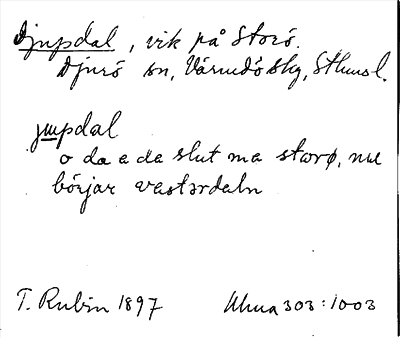 Djupdal, vik på Storö.
Djurö sn, Värmdö skg, Sthmsl.
jupdal
o da a de slut ma storø, nu
börjar vastərdaln
T. Rubin 1897 Uhua 303:1003